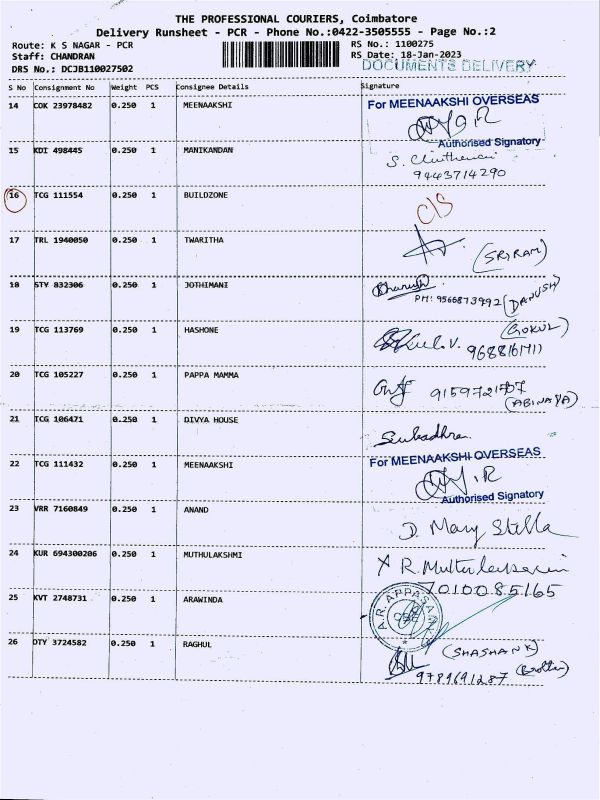 THE PROFESSIONAL COURIERS, Coimbatore
Delivery Runsheet - PCR - Phone No.:0422-3505555 - Page No.:2
Route: K S NAGAR - PCR
RS No.: 1100275
Staff: CHANDRAN
RS Date: 18-Jan-2023
DRS No.: DCJB110027502
DOCUMENTS DELIVERY
S No Consignment No Weight PCS Consignee Details Signature
14 COK 23978482 0.250 1 MEENAAKSHI
For MEENAAKSHI OVERSEAS
Authorised Signatory
15 KDI 498445 0.250 1 MANIKANDAN
9443714290
16 TCG 111554 0.250 1 BUILDZONE C/S
17 TRL 1940050 0.250 1 TWARITHA
(SRIRAM)
18 STY 832306 0.250 1 JOTHIMANI
PH: 9566873992 (DANUSH)
19 TCG 113769 0.250 1 HASHONE
(GOKUL)
20 TCG 105227 0.250 1 PAPPA MAMMA
(ABINAYA)
21 TCG 106471 0.250 1 DIVYA HOUSE
Subadhra
22 TCG 111432 0.250 1 MEENAAKSHI
For MEENAAKSHI OVERSEAS
Authorised Signatory
23 VRR 7160849 0.250 1 ANAND
D. Mary Stella
24 KUR 694300206 0.250 1 MUTHULAKSHMI
7010085165
25 KVT 2748731 0.250 1 ARAWINDA
26 DTY 3724582 0.250 1 RAGHUL
(SHASHANK)
(Brother)
9789691287